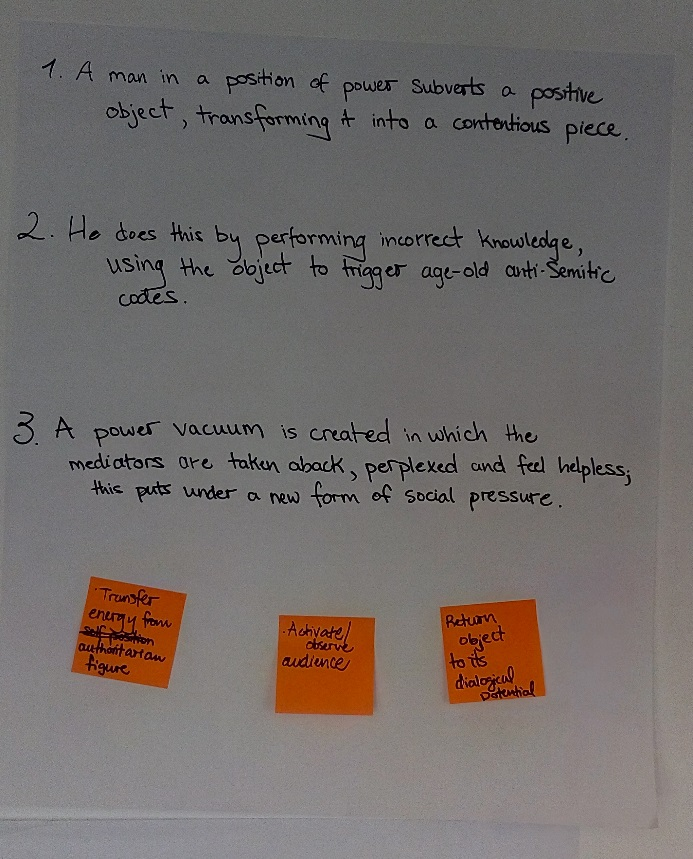 1. A man in a position of power subverts a positive
object, transforming it into a contentious piece.
2. He does this by performing incorrect knowledge,
using the object to trigger age-old anti-Semitic
codes.
3. A power vacuum is created in which the
mediators are taken aback, perplexed and feel helpless;
this puts under a new form of social pressure.
· Transfer
energy from
self position
authoritarian
figure
· Activate/
observe
audience
Return
object
to its
dialogical
potential